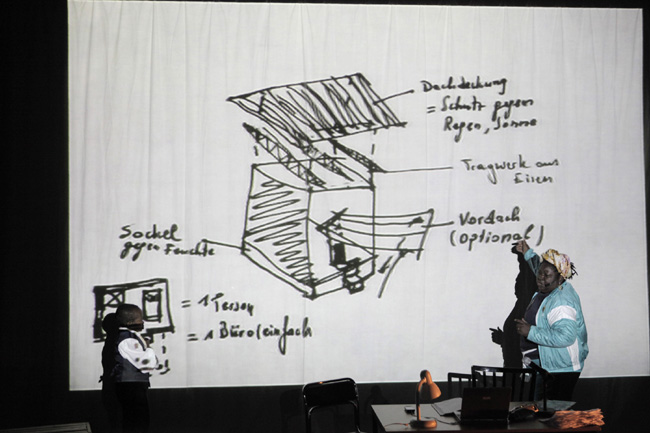 Dachdeckung
= Schutz gegen
Regen, Sonne
Tragwerk aus
Eisen
Vordach
(optional)
Sockel
gegen Feuchte
= 1 Person
= 1 Büro(einfach)